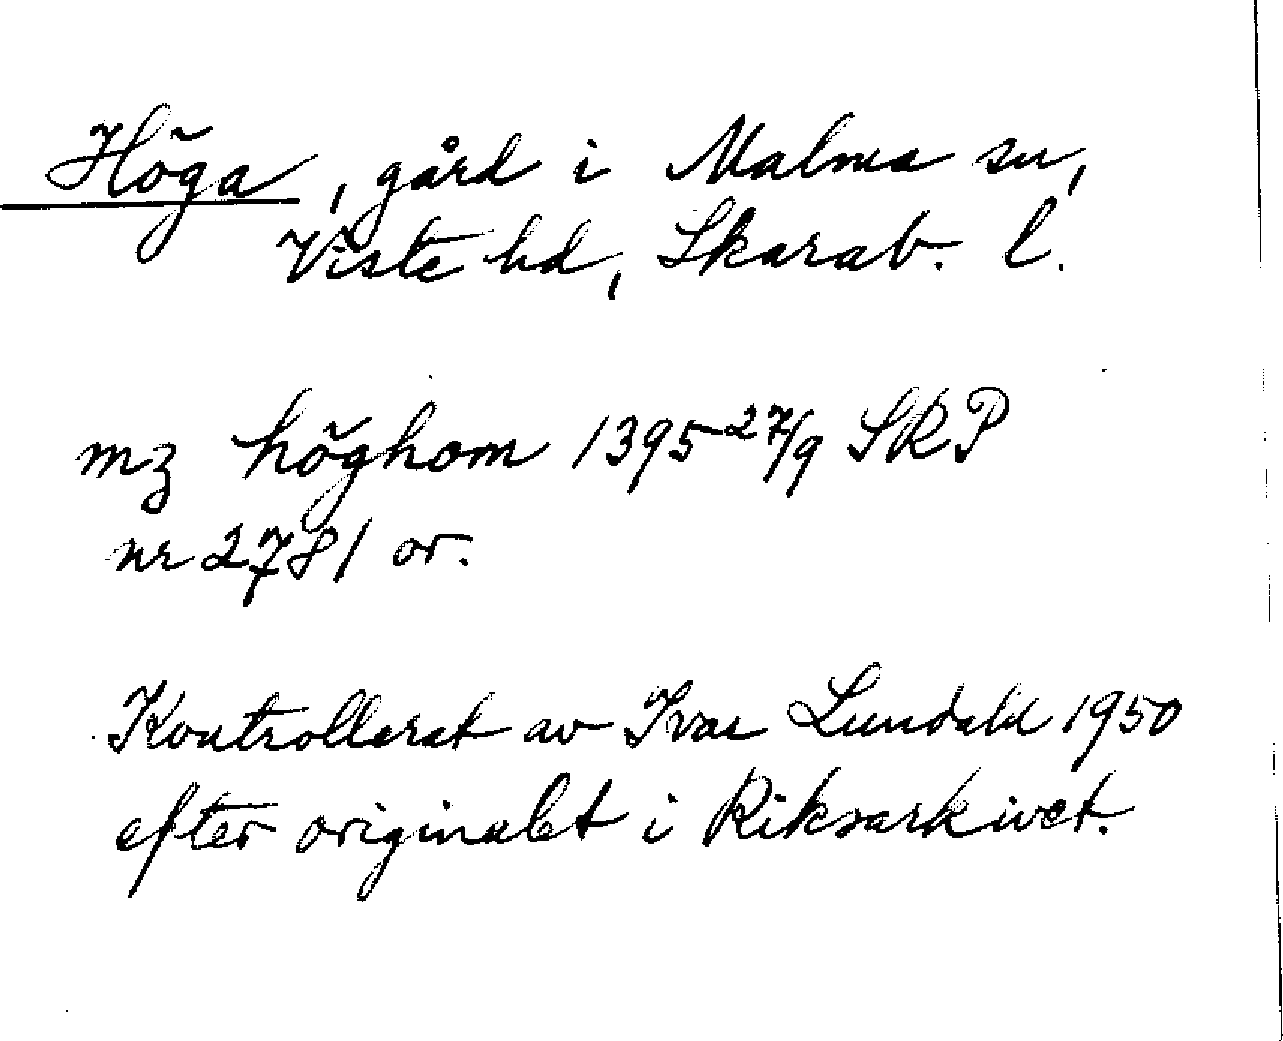 Höga, gård i Malma sn,
Viste hd, Skarab. l.
mz höghom 1395 27/9 SRP
nr 2781 or.
Kontrollerat av Ivar Lundahl 1950
efter originalet i Riksarkivet.